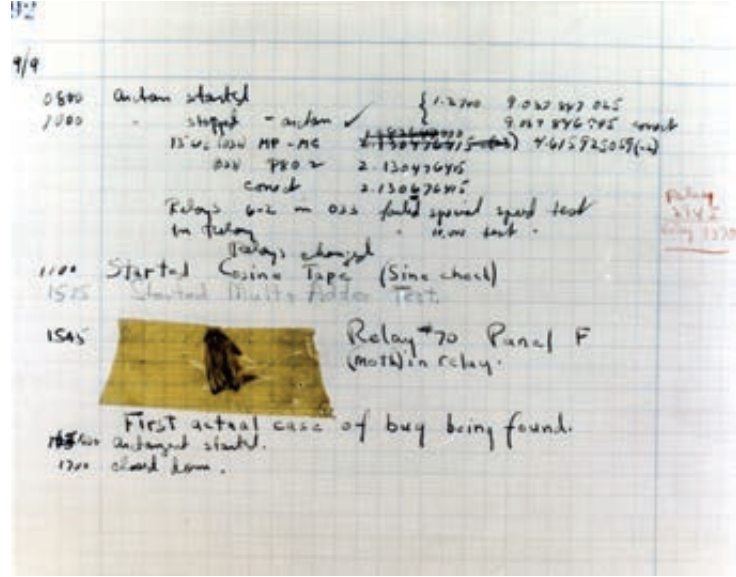 92
9/9
0800 antan started { 1.2700 9.037 847 025
1000 " stopped - antan ✓ 9.037 846 795 correct
13"uc (032) MP - MC 2.130476415 (-3) 4.615925059(-2)
033 PRO 2 2.130476415
correct 2.130676415
Relays 6-2 in 033 failed special speed test
in Relay " 11.00 test "
Relays changed
Relay
2145
Relay 3370
1100 Started Cosine Tape (Sine check)
1525 Started Mult+Adder Test.
1545 Relay #70 Panel F
(moth) in relay.
First actual case of bug being found.
1600 antangent started.
1700 closed down.